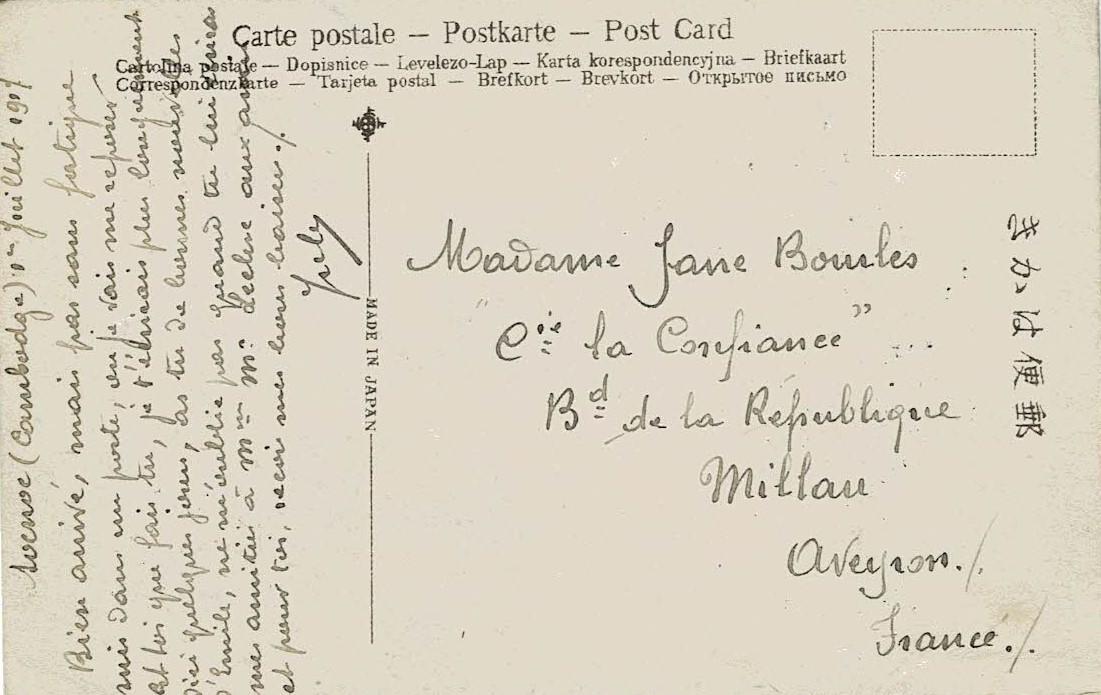 Carte postale — Postkarte — Post Card
Cartolina postale — Dopisnice — Levelezo-Lap — Karta korespondencyjna — Briefkaart
Correspondenzkarte — Tarjeta postal — Brefkort — Brevkort — Открытое письмо
(Cambodge) 1er Juillet 1907
Bien arrivé, mais pas sans fatigue
suis dans un poste, où je vais me reposer
et toi que fais tu, je t'écrirais plus longuement
d'ici quelques jours, as tu de bonnes nouvelles
d'Emile, ne m'oublie pas quand tu lui écriras
mes amitiés à Mme Mr aux amis
et pour toi, reçoi mes bons baisers./.
MADE IN JAPAN
Madame Jane Bourles
Cie la Confiance"
Bd de la République
Millau
Aveyron./.
France./.
きかは便郵